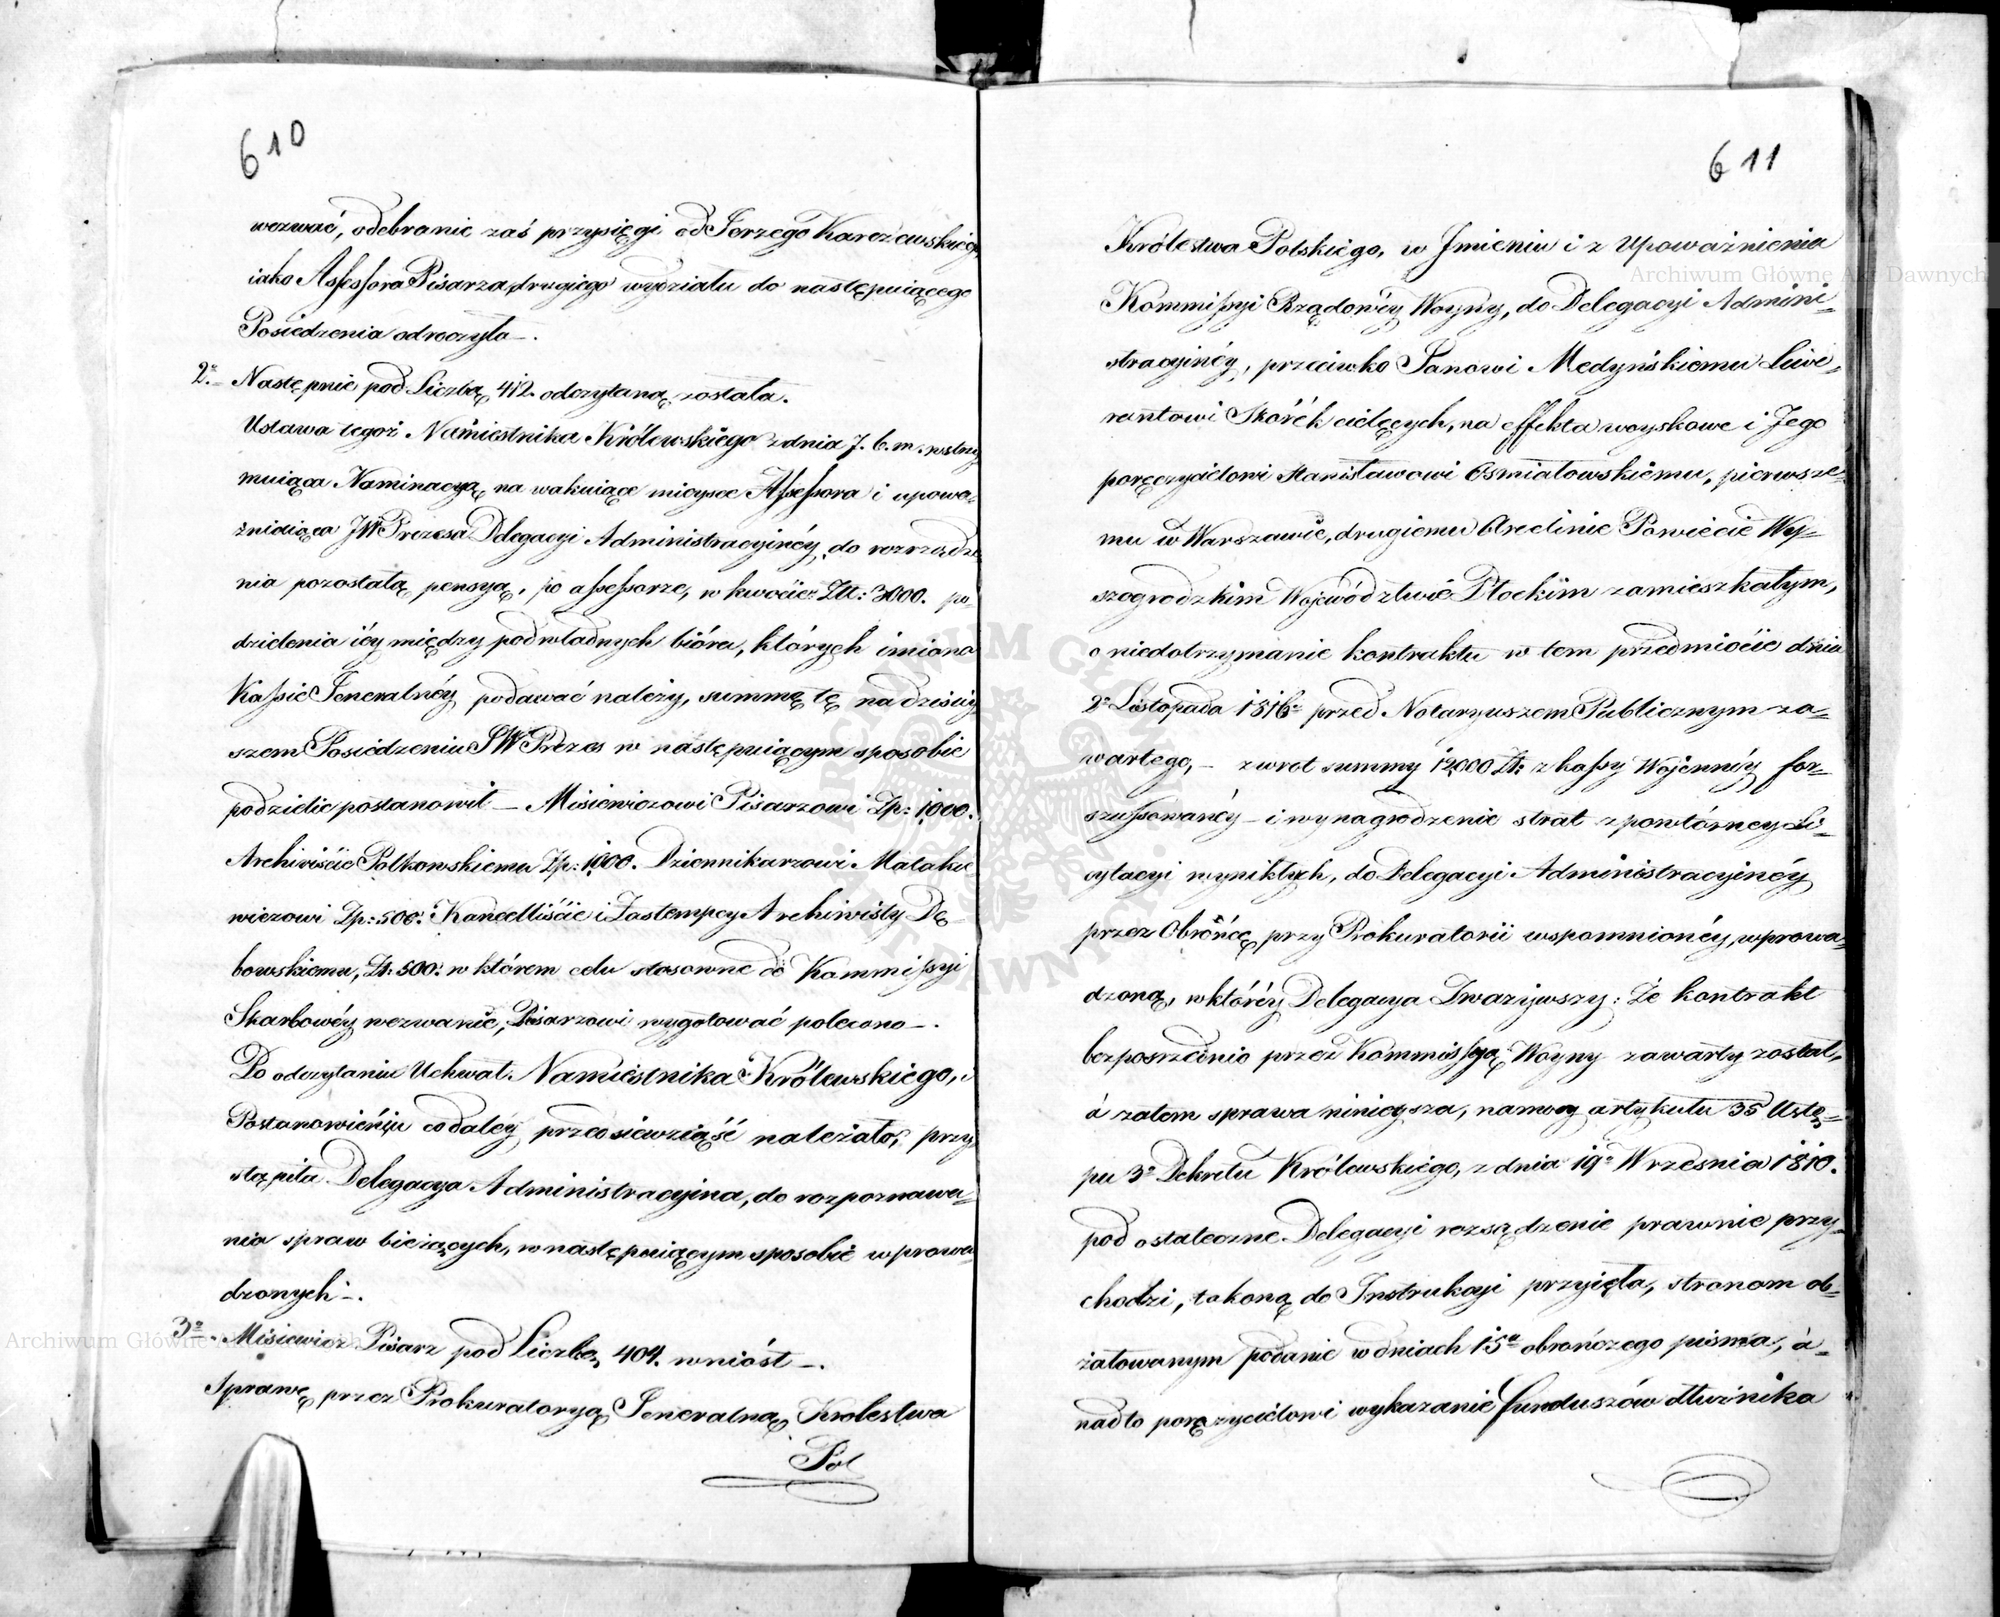 610
wezwać, odebranie zaś przysięgi od Jerzego Karczewskiego
iako Assessora Pisarza drugiego wydziału do następuiącego
Posiedzenia odroczyła —.
2º. Następnie pod Liczbą 412. odczytaną została.
Ustawa tegoż Namiestnika Królewskiego z dnia 7. b. m. wstrzy
muiąca Nominacyą na wakuiące mieysce Assessora i upowa-
żniaiąca JW Prezesa Delegacyi Administracyinéy, do rozrządze
nia pozostałą pensyą, po assessorze, w kwocie Zł: 3000. po-
dzielenia iéy między podwładnych bióra, których imiona
Kassie Jeneralnéy podawać należy, summę tę na dzisiey
szem Posiedzeniu JW Prezes w następuiącym sposobie
podzielić postanowił — Misiewiczowi Pisarzowi Zp: 1000.
Archiwiście Polkowskiemu Zp: 1000. Dziennikarzowi Malakie
wiczowi Zp: 500. Kancelliście i Zastempcy Archiwisty Dę-
bowskiemu, Zł: 500. w którem celu stosowne do Kommissyi
Skarbowéy wezwanie, Pisarzowi wygotować polecono —.
Po odczytaniu Uchwał Namiestnika Królewskiego, i
Postanowieniu co daléy przedsiewziąść należało, przy
stąpiła Delegacya Administracyina, do rozpoznawa-
nia spraw bieżących, w następuiącym sposobie wprowa
dzonych —.
3º. Misiewicz Pisarz pod Liczbą 404. wniósł —.
Sprawę przez Prokuratoryą Jeneralną Krolestwa
Pol
611
Królestwa Polskiego, w Jmieniu i z Upoważnienia
Kommissyi Rządowéy Woyny, do Delegacyi Admini-
stracyinéy, przeciwko Panowi Medyńskiemu Liwe-
rantowi Skórek cielęcych, na effekta woyskowe i Jego
poręczycielowi Stanisławowi Osmiałowskiemu, pierwsze-
mu w Warszawie, drugiemu Orcelinie Powiecie Wy-
szogrodzkim Województwie Płockim zamieszkałym,
o niedotrzymanie kontraktu w tem przedmiocie dnia
2º Listopada 1816º przed Notaryuszem Publicznym za-
wartego, — zwrot summy 12,000 Zł: z kassy Wojennéy for-
szussowanéy — i wynagrodzenie strat z powtórney Li-
cytacyi wynikłych, do Delegacyi Administracyinéy
przez Obrońcę przy Prokuratorii wspomnionéy, wprowa-
dzoną, w któréy Delegacya Zważywszy: Że kontrakt
bezposrzednio przez Kommissyą Woyny zawarty został,
à zatem sprawa ninieysza, na mocy artykułu 35 Ustę-
pu 3º Dekretu Królewskiego, z dnia 19º Września 1810.
pod ostateczne Delegacyi rozsądzenie prawnie przy-
chodzi, takową do Instrukcyi przyięła, stronom ob-
żałowanym podanie w dniach 15u obrończego pisma, à-
nadto poręczycielowi wykazanie funduszów dłużnika